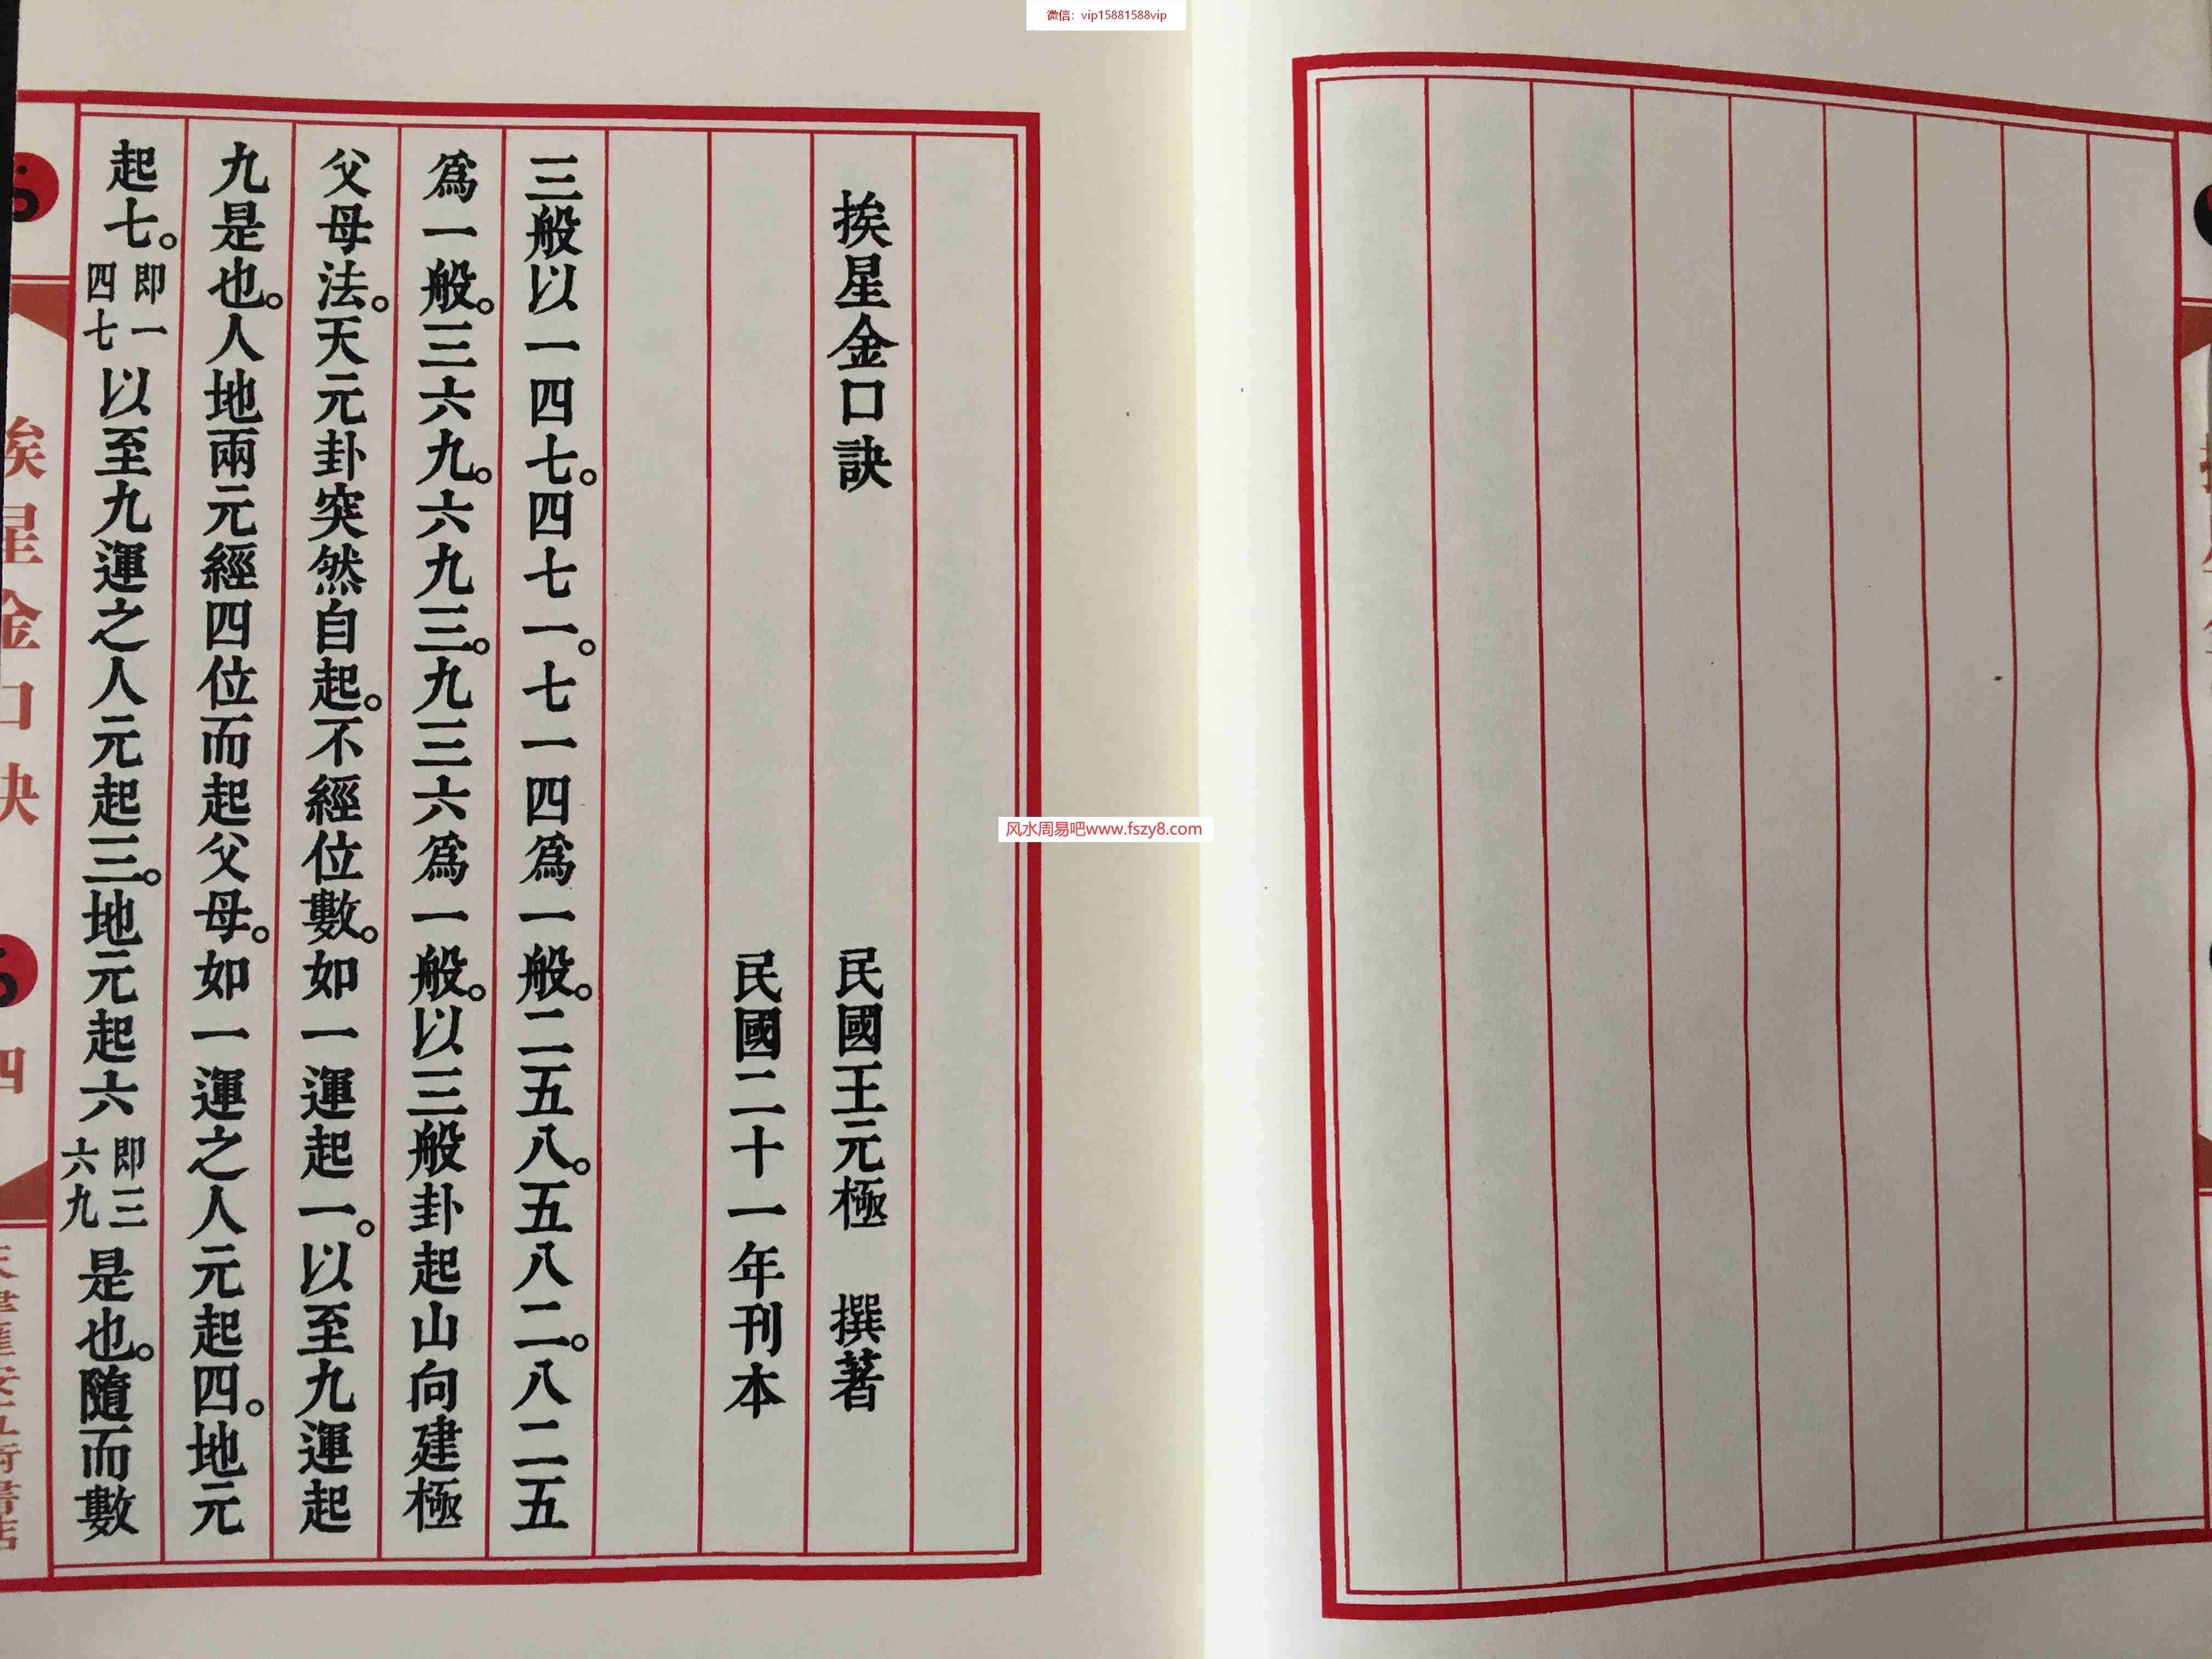 微信：vip15881588vip
挨星金口訣　民國王元極　撰著
民國二十一年刊本
三般以一四七。四七一。七一四爲一般。二五八。五八二。八二五
爲一般。三六九。六九三。九三六爲一般。以三般卦起山向建極
父母法。天元卦突然自起。不經位數。如一運起一。以至九運起
九是也。人地兩元經四位而起父母。如一運之人元起四。地元
起七。即一四七以至九運之人元起三。地元起六即三六九是也。隨而數
挨星金口訣　四
风水周易吧www.fszy8.com